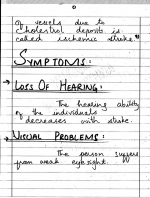 of vessels due to
cholestrol deposits is
called ischemic stroke."
SYMPTOMS:
→ LOSS OF HEARING:
The hearing ability
of the individuals
decreases with stroke.
→ VISUAL PROBLEMS:
The person suffers
from weak eyesight.